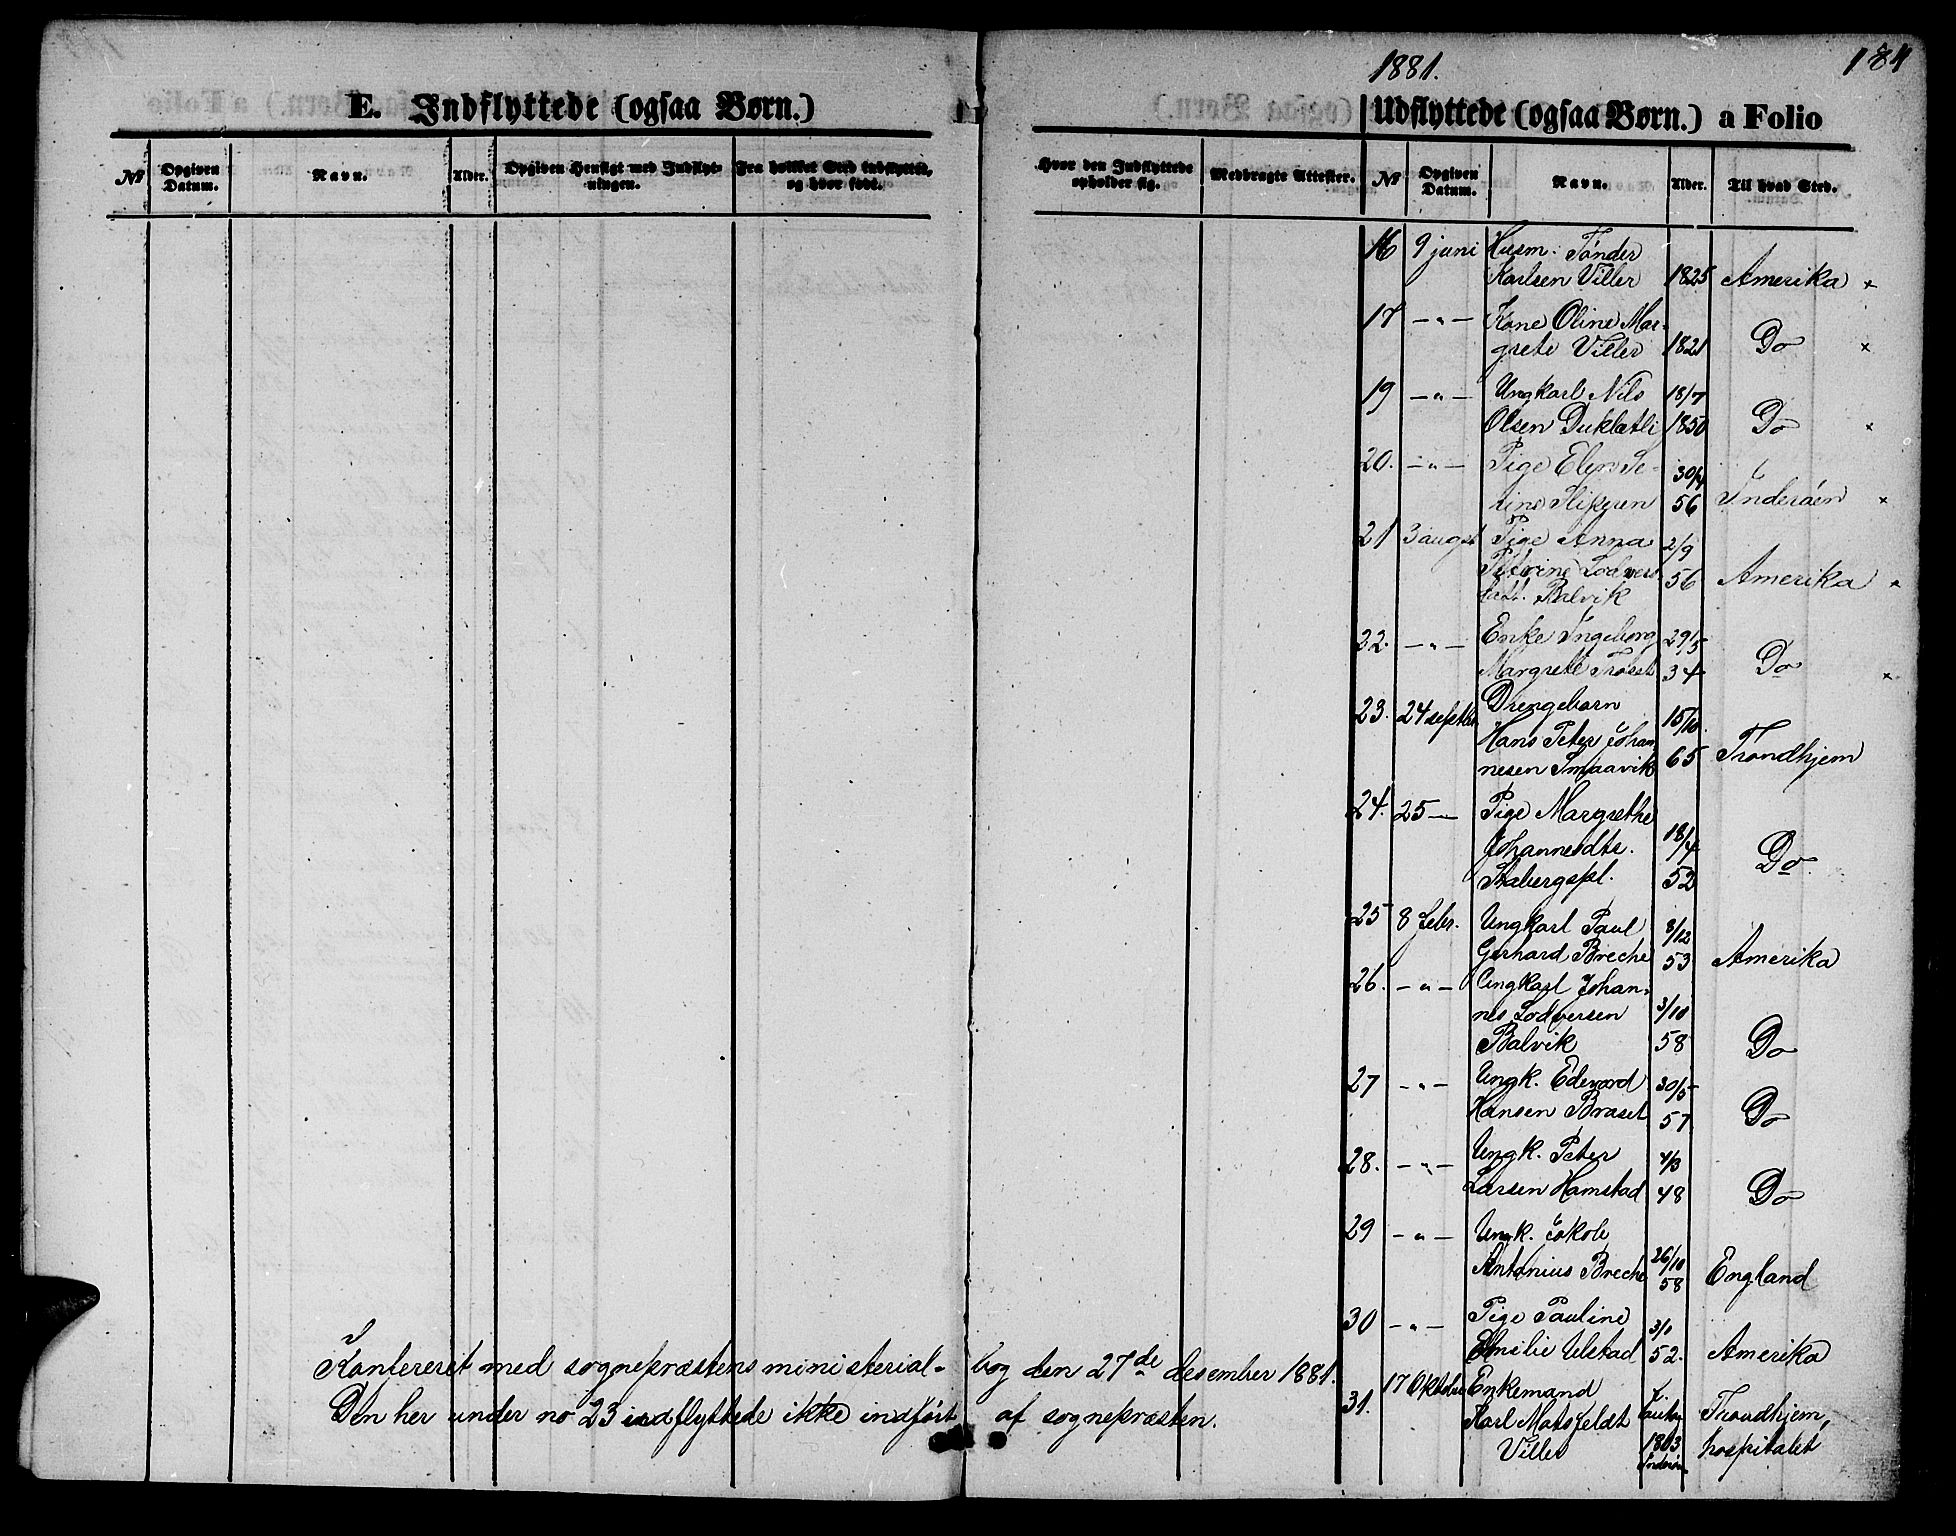 1881.
184
E. Indflyttede (ogsaa Børn.)
Udflyttede (ogsaa Børn.) a Folio
No
Opgiven Datum.
Navn.
Alder.
Opgiven Hensigt med Indflytningen.
Fra hvilket Sted indflyttet, og hvor født.
Hvor den Indflyttede opholder sig.
Medbragte Attester.
No
Opgiven Datum.
Navn.
Alder.
Til hvad Sted.
16 9 juni Husm. Tønder
Karlsen Viller 1825 Amerika ×
17 —"— Kone Oline Mar-
grete Viller 1821 Do ×
19 —"— Ungkarl Nils 18/7
Olsen 1850 Do ×
20. —"— Pige Elen Se- 30/4
rine 56 Inderøen ×
21 3 august Pige Anna 2/9
Petrine Lodvers-
datt. Balvik 56 Amerika ×
22. —"— Enke Ingeborg 29/5
Margrete 34 Do ×
23. 24 septbr Drengebarn 15/10
Hans Peter Johan
nesen Smaavik 65 Trondhjem
24. 25— Pige Margrethe
Johannesdtr. 18/4
52 Do.
25 8 febr. Ungkarl Paul 8/12
Gerhard Breche 53 Amerika
26. —"— Ungkarl Johan-
nes Lodversen 3/10
Balvik 58 Do
27 —"— Ungk. Edevard 30/5
Hansen Braset 57 Do
28. —"— Ungk. Peter 4/3
Larsen Hamstad 48 Do
29 —"— Ungk. Jakob
Antonius Breche 26/10 58 England
30 —"— Pige Pauline 3/1
Emilie Ulstad 52. Amerika
31. 17 Oktober Enkemand
Karl Motzfeldt Trondhjem,
Viller 1803 hospitalet
Konfereret med sognepræstens ministerial-bog den 27de desember 1881.
Den her under no 23 indflyttede ikke indført af sognepræsten.